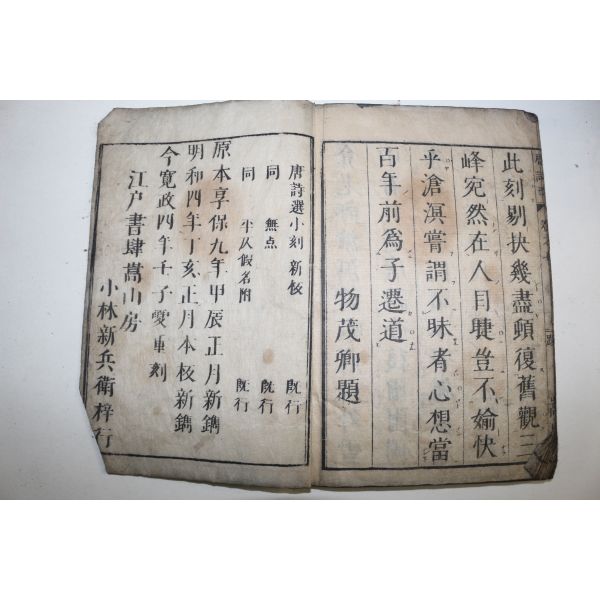 此刻剔抉幾盡頓復舊觀三
峰宛然在人目睫豈不愉快
乎滄溟嘗謂不昧者心想當
百年前為子遷道
物茂卿題
唐詩選小刻 新校 既行
同 無点 既行
同 平仄假名附 既行
原本享保九年甲辰正月新鐫
明和四年丁亥正月本校新鐫
今寬政四年壬子夏重刻
江戶書肆嵩山房
小林新兵衛梓行